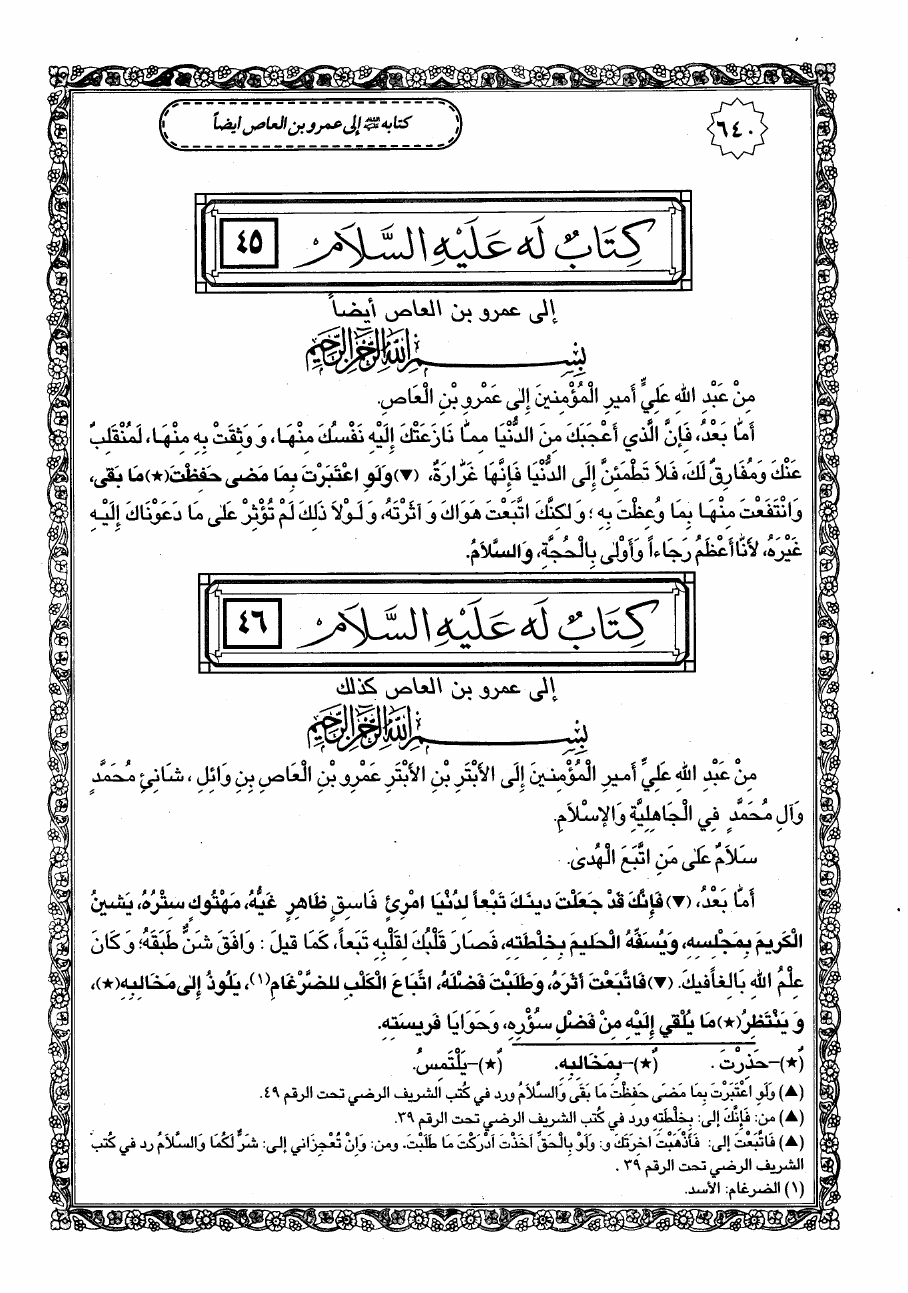 ٦٤٠
كتابه عليه السلام إلى عمرو بن العاص أيضاً
كِتَابٌ لَه عَلَيْهِ السَّلَام
٤٥
إلى عمرو بن العاص أيضاً
بِسْمِ اللَّهِ الرَّحْمَنِ الرَّحِيمِ
مِنْ عَبْدِ اللهِ عَلِيٍّ أَميرِ الْمُؤْمِنينَ إِلى عَمْرِو بْنِ الْعَاصِ.
أَمَّا بَعْدُ، فَإِنَّ الَّذي أَعْجَبَكَ مِنَ الدُّنْيَا مِمَّا نَازَعَتْكَ إِلَيْهِ نَفْسُكَ مِنْهَا، وَ وَثِقَتْ بِهِ مِنْهَا، لَمُنْقَلِبٌ
عَنْكَ وَمُفَارِقٌ لَكَ، فَلاَ تَطْمَئِنَّ إِلَى الدُّنْيَا فَإِنَّهَا غَرَّارَةٌ، (▼) وَلَوِ اعْتَبَرْتَ بِمَا مَضى حَفِظْتَ(★) مَا بَقى،
وَانْتَفَعْتَ مِنْهَا بِمَا وُعِظْتَ بِهِ ؛ وَلكِنَّكَ اتَّبَعْتَ هَوَاكَ وَ آثَرْتَهُ، وَلَوْلاَ ذلِكَ لَمْ تُؤْثِرْ عَلى مَا دَعَوْنَاكَ إِلَيْهِ
غَيْرَهُ، لأَنَّا أَعْظَمُ رَجَاءاً وَأَوْلى بِالْحُجَّةِ، وَالسَّلاَمُ.
كِتَابٌ لَه عَلَيْهِ السَّلَام
٤٦
إلى عمرو بن العاص كذلك
بِسْمِ اللَّهِ الرَّحْمَنِ الرَّحِيمِ
مِنْ عَبْدِ اللهِ عَلِيٍّ أَميرِ الْمُؤْمِنينَ إِلَى الأَبْتَرِ بْنِ الأَبْتَرِ عَمْرِو بْنِ الْعَاصِ بِنِ وَائِلٍ ، شَانِئِ مُحَمَّدٍ
وَآلِ مُحَمَّدٍ فِي الْجَاهِلِيَّةِ وَالإِسْلاَمِ.
سَلاَمٌ عَلى مَنِ اتَّبَعَ الْهُدى.
أَمَّا بَعْدُ، (▼) فَإِنَّكَ قَدْ جَعَلْتَ دينَكَ تَبَعاً لِدُنْيَا امْرِئٍ فَاسِقٍ ظَاهِرٍ غَيُّهُ، مَهْتُوكٍ سِتْرُهُ، يَشينُ
الْكَريمَ بِمَجْلِسِهِ، وَيُسَفِّهُ الْحَليمَ بِخِلْطَتِهِ، فَصَارَ قَلْبُكَ لِقَلْبِهِ تَبَعاً، كَمَا قيلَ : وَافَقَ شَنٌّ طَبَقَهُ؛ وَكَانَ
عِلْمُ اللهِ بَالِغاً فيكَ. (▼) فَاتَّبَعْتَ أَثَرَهُ، وَطَلَبْتَ فَضْلَهُ، اتِّبَاعَ الْكَلْبِ لِلضِّرْغَامِ(١)، يَلُوذُ إِلى مَخَالِبِهِ(★)،
وَ يَنْتَظِرُ(★) مَا يُلْقي إِلَيْهِ مِنْ فَضْلِ سُؤْرِهِ، وَحَوَايَا فَريسَتِهِ.
(★)-حَذِرْتَ . (★)-بِمَخَالِبِهِ. (★)-يَلْتَمِسُ.
(▲) وَلَوِ اعْتَبَرْتَ بِمَا مَضى حَفِظْتَ مَا بَقَى وَالسَّلاَمُ ورد في كُتب الشريف الرضي تحت الرقم ٤٩.
(▲) من: فَإِنَّكَ إلى: بِخِلْطَتِهِ ورد في كُتب الشريف الرضي تحت الرقم ٣٩.
(▲) فَاتَّبَعْتَ إلى: فَأَذْهَبْتَ آخِرَتَكَ و: وَلَوْ بِالْحَقِّ أَخَذْتَ أَدْرَكْتَ مَا طَلَبْتَ. ومن: وَإِنْ تُعْجِزَاني إلى: شَرٌّ لَكُمَا وَالسَّلاَمُ رد في كتب
الشريف الرضي تحت الرقم ٣٩ .
(١) الضرغام: الأسد.